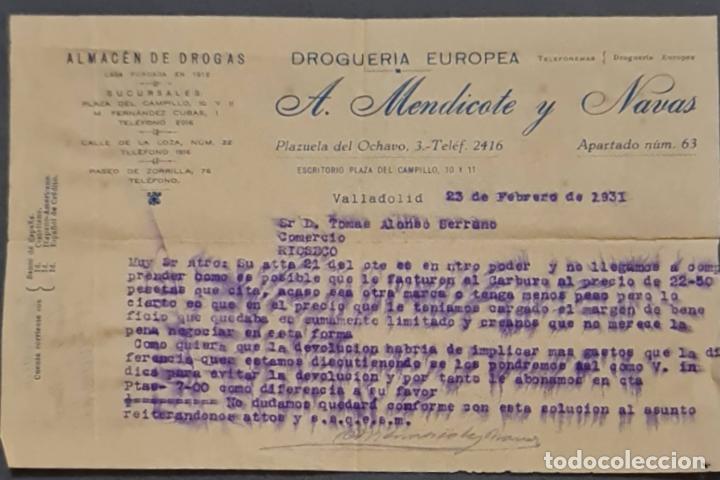 ALMACÉN DE DROGAS
CASA FUNDADA EN 1912
SUCURSALES
PLAZA DEL CAMPILLO, 10 Y 11
M. FERNÁNDEZ CUBAS, 1
TELÉFONO 2016
CALLE DE LA LOZA, NÚM. 22
TELÉFONO 1916
PASEO DE ZORRILLA, 76
TELÉFONO.
Cuenta corriente con
Banco de España.
Id. Castellano.
Id. Hispano-Americano
Id. Español de Crédito.
DROGUERÍA EUROPEA
TELEFONEMAS Droguería Europea
A. Mendicote y Navas
Plazuela del Ochavo, 3.-Teléf. 2416
Apartado núm. 63
ESCRITORIO PLAZA DEL CAMPILLO, 10 Y 11
Valladolid 23 de Febrero de 1931
Sr D. Tomas Alonso Serrano
Comercio
RIOSECO
Muy Sr ntro: Su atta 21 del cte es en ntro poder y no llegamos a com
prender como es posible que le facturen el Carburo al precio de 22-50
pesetas que cita, acaso sea otra marca o tenga menos peso pero lo
cierto es que en el precio que le teniamos cargado el margen de bene
ficio que quedaba es sumamente limitado y creanos que no merece la
pena negociar en esta forma
Como quiera que la devolucion habria de implicar mas gastos que la di
ferencia que estamos discutiendo se los pondremos al como V. in
dica para evitar la devolucion y por tanto le abonamos en cta
Ptas- 7-00 como diferencia a su favor
No dudamos quedará conforme con esta solucion al asunto
reiterandonos attos y s.s.q.e.s.m.
todocoleccion
todocoleccion.net